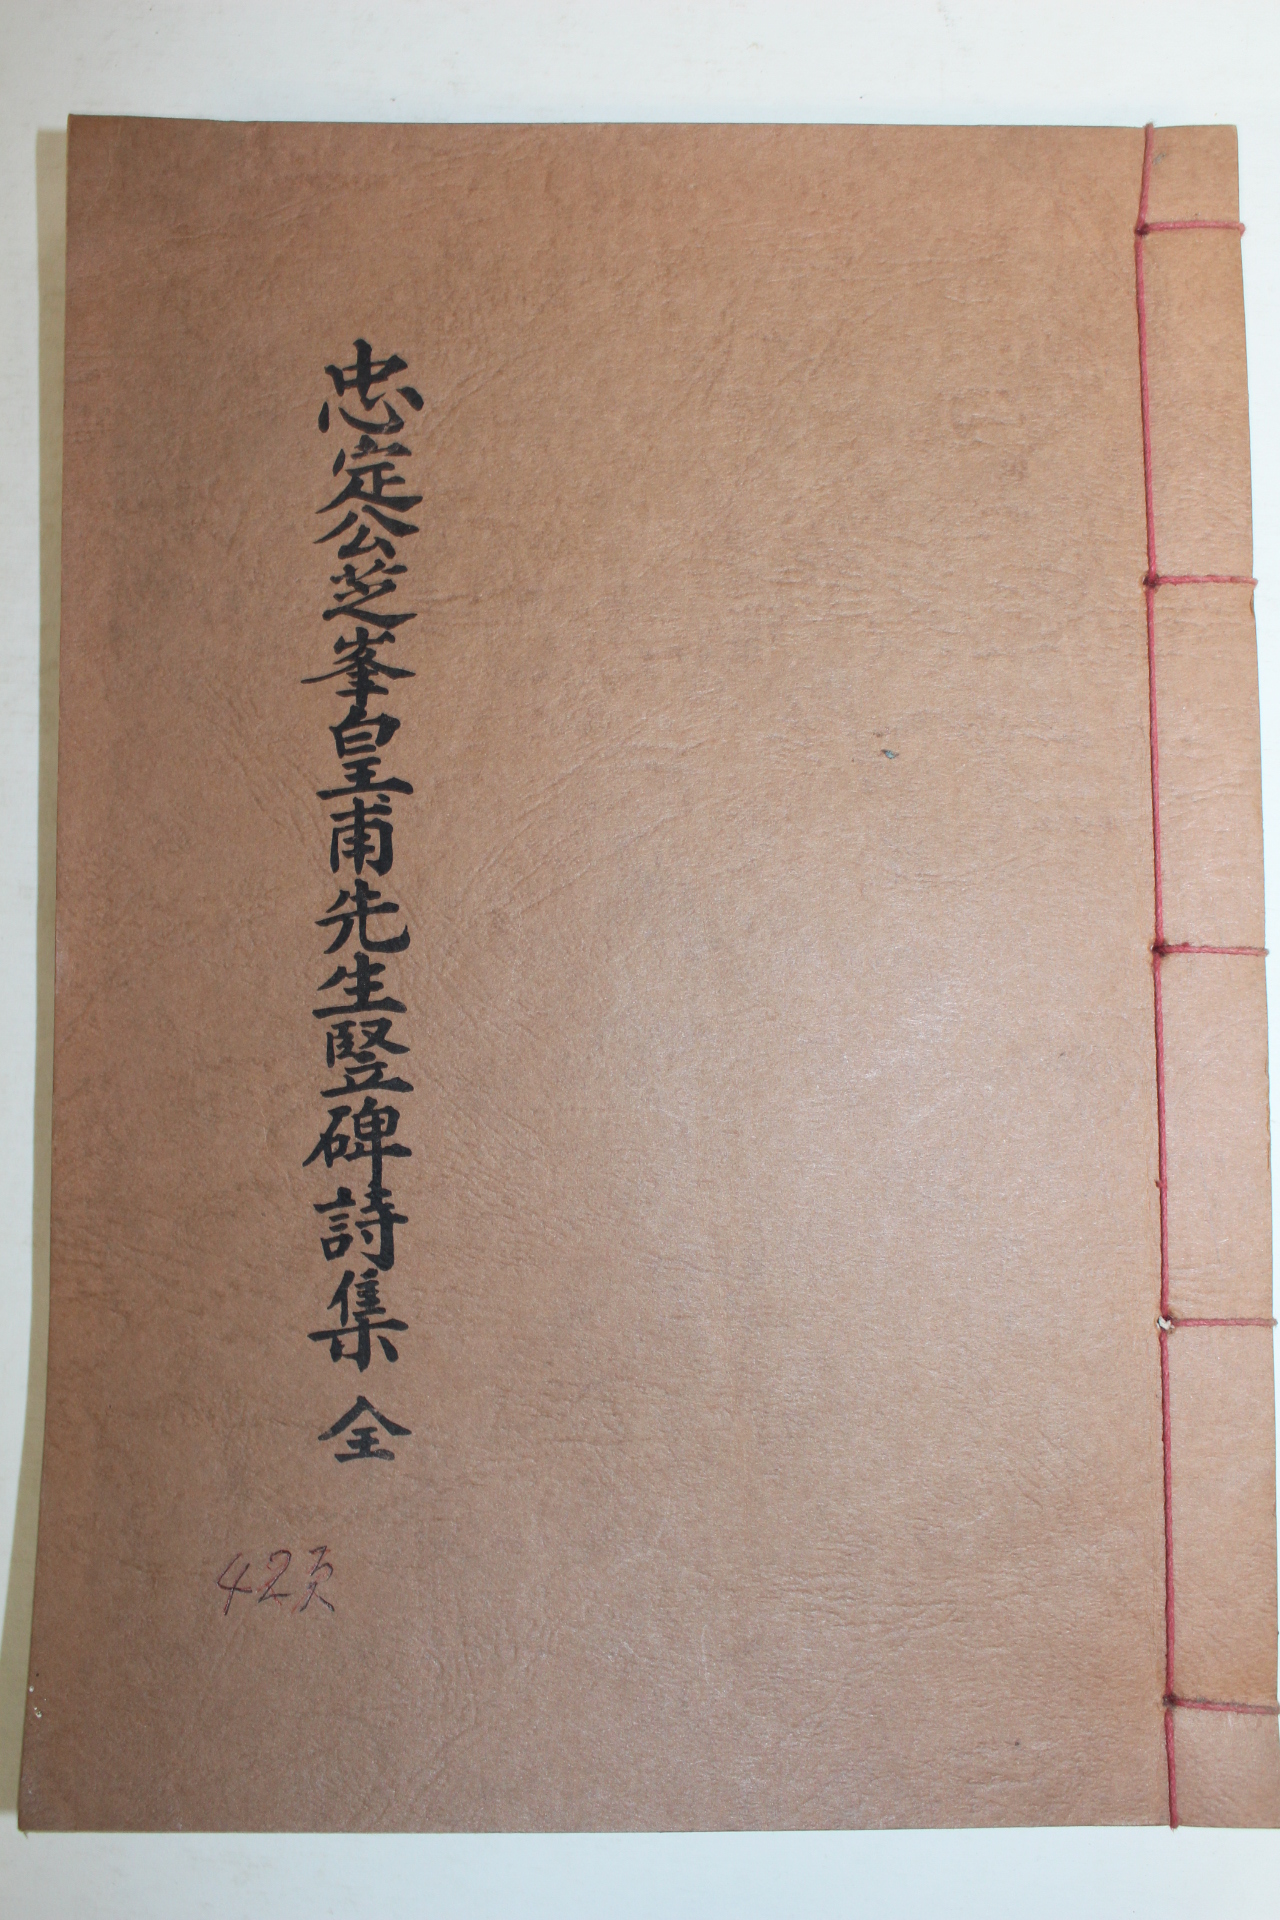 忠定公芝峯皇甫先生竪碑詩集 全
42页